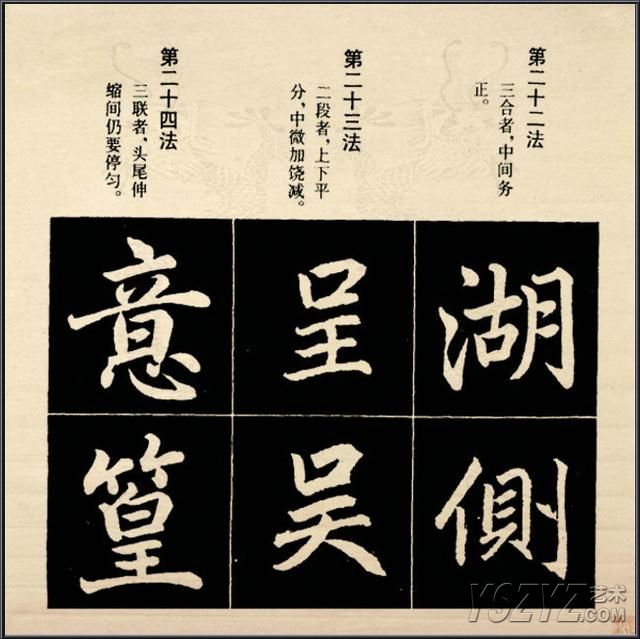 第二十二法
三合者，中间务
正。
第二十三法
二段者，上下平
分，中微加饶减。
第二十四法
三联者，头尾伸
缩间仍要停匀。
湖
侧
呈
吴
意
篁
YSZYZ艺术
.COM